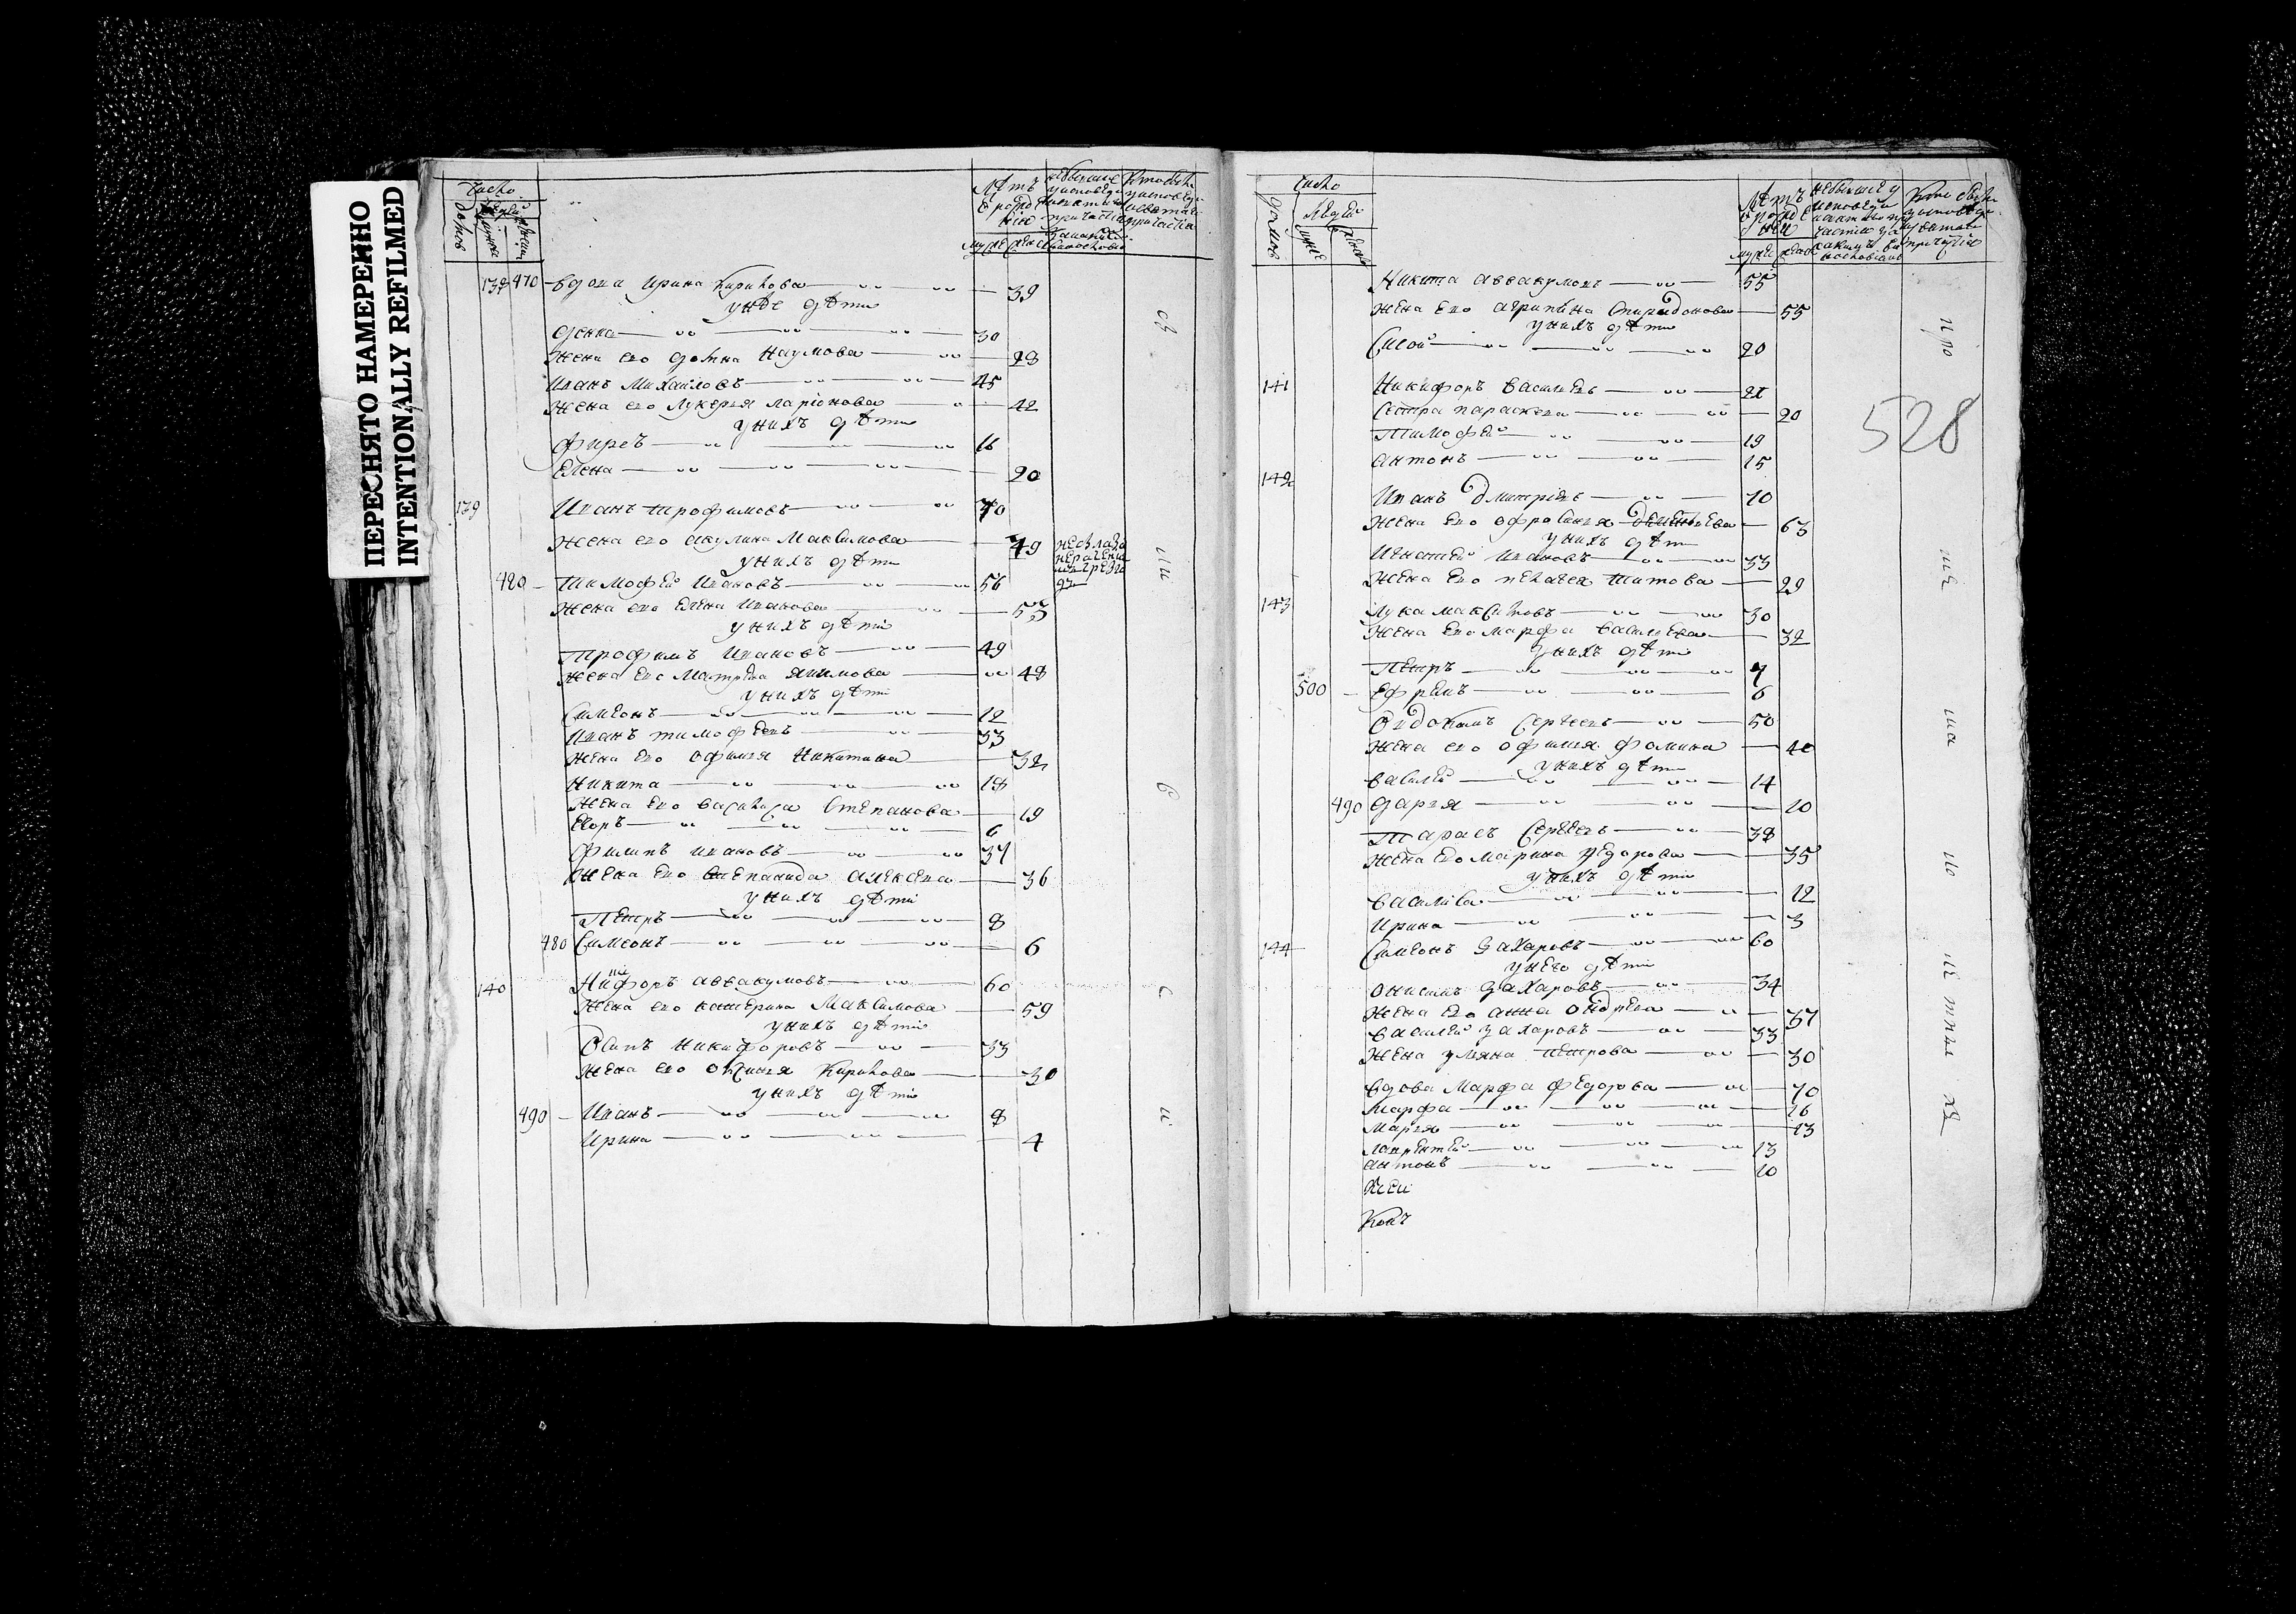 ПЕРЕСНЯТО НАМЕРЕННО
INTENTIONALLY REFILMED
число
домовъ людей
мужеска женска
лѣтъ
от рождения
муже женс
небывшие
у исповеди
и святаго
причастия
за каким
винословием
Кто былъ
у исповеди
и святаго
причастия
138 470 вдова Ирина Кирилова 39
у нѣе дѣти
30
жена его домна Наумова 28
Иванъ Михаиловъ 45
жена его Лукерья ларионова 42
у нихъ дѣти
фирсъ 16
Елена 20
139 Иванъ трофимовъ 70
жена его акулина Максимова 79
у нихъ дѣти
480 тимофей Ивановъ 56
жена его Елена Иванова 55
у нихъ дѣти
трофимъ Ивановъ 49
жена его матрена якимова 48
у нихъ дѣти
Симеонъ 12
Иванъ тимофеевъ 33
жена его офимия никитина 32
никита 18
жена его василиса Степанова 19
Егоръ 6
филипъ ивановъ 37
жена его степанида алексеева 36
у нихъ дѣти
Петръ 8
480 Симеонъ 6
140 Никифоръ аввакумовъ 60
жена его катерина Максимова 59
у нихъ дѣти
Осипъ никифоровъ 33
жена его Оксиния Кирилова 30
у нихъ дѣти
490 Иванъ 8
Ирина 4
число
домовъ людей
мужес женска
лѣтъ
от рожде
ния
муже женс
небывшие у
исповеди
и святаго при
частия за
какимъ ви
нословием
Кто былъ
у исповеди
и святаго
причастия
Никита аввакумовъ 55
жена его агрипина Спиридонова 55
у нихъ дѣти
Сисой 20
141 Никифоръ Васильевъ 21
Сестра параскева 20
Тимофей 19
антонъ 15
142 Иванъ Дмитриевъ 70
жена его офросиния Дементьева 63
у нихъ дѣти
Игнатей Ивановъ 33
жена его пелагея титова 29
143 лука максимовъ 30
жена его марфа васильева 32
у нихъ дѣти
Петръ 7
500 Ефремъ 6
Овдокимъ Сергеевъ 50
жена его офимия фомина 40
у нихъ дѣти
василей 14
490 дарья 10
Тарасъ Сергеевъ 38
жена его марина федорова 35
у нихъ дѣти
василиса 12
Ирина 3
144 Симеонъ Захаровъ 60
у него дѣти
онисимъ захаровъ 34
жена его анна ондреева 37
василей захаровъ 33
жена ульяна петрова 30
вдова Марфа федорова 70
марфа 16
марья 13
лаврентей 13
антонъ 10
528